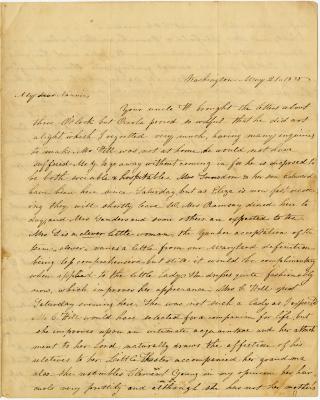 Washington May 21. 1835
My dear Nannie,
Your uncle H brought the letters about
three O'clock but Carla proved so restful that he did not
alight which I regretted very much, having many enquiries
to make. Mr Hill was not at home he would not have
suffered Mr G to go away without coming in for he is disposed to
be both sociable & hospitable. Mrs Lunsdon & her son Edward
have been here since Saturday but as Eliza is now fast recov
ering they will shortly leave. W. Mrs Ramsay dined here to
day and Mrs Sanders and some others are expected to tea
Mrs D is a clever little woman, the yankee acceptation of the
term, clever, varies a little from our Maryland definition
being less comprehensive, but still it would be complimentary
when applied to the little Lady. She dresses quite fashionably
now, which improves her appearance. Mrs C Hill spent
Saturday evening here. She was not such a lady as I supposed
Mr C. Hill would have selected for a companion for life, but
she improves upon an intimate acquaintance and her attach
ment to her Lord, naturally draws the affection of his
relatives to her. Little Hester accompanied her grandma
also. She resembles Clement Young in my opinion her hair
curls very prettily and although she has not her mother's